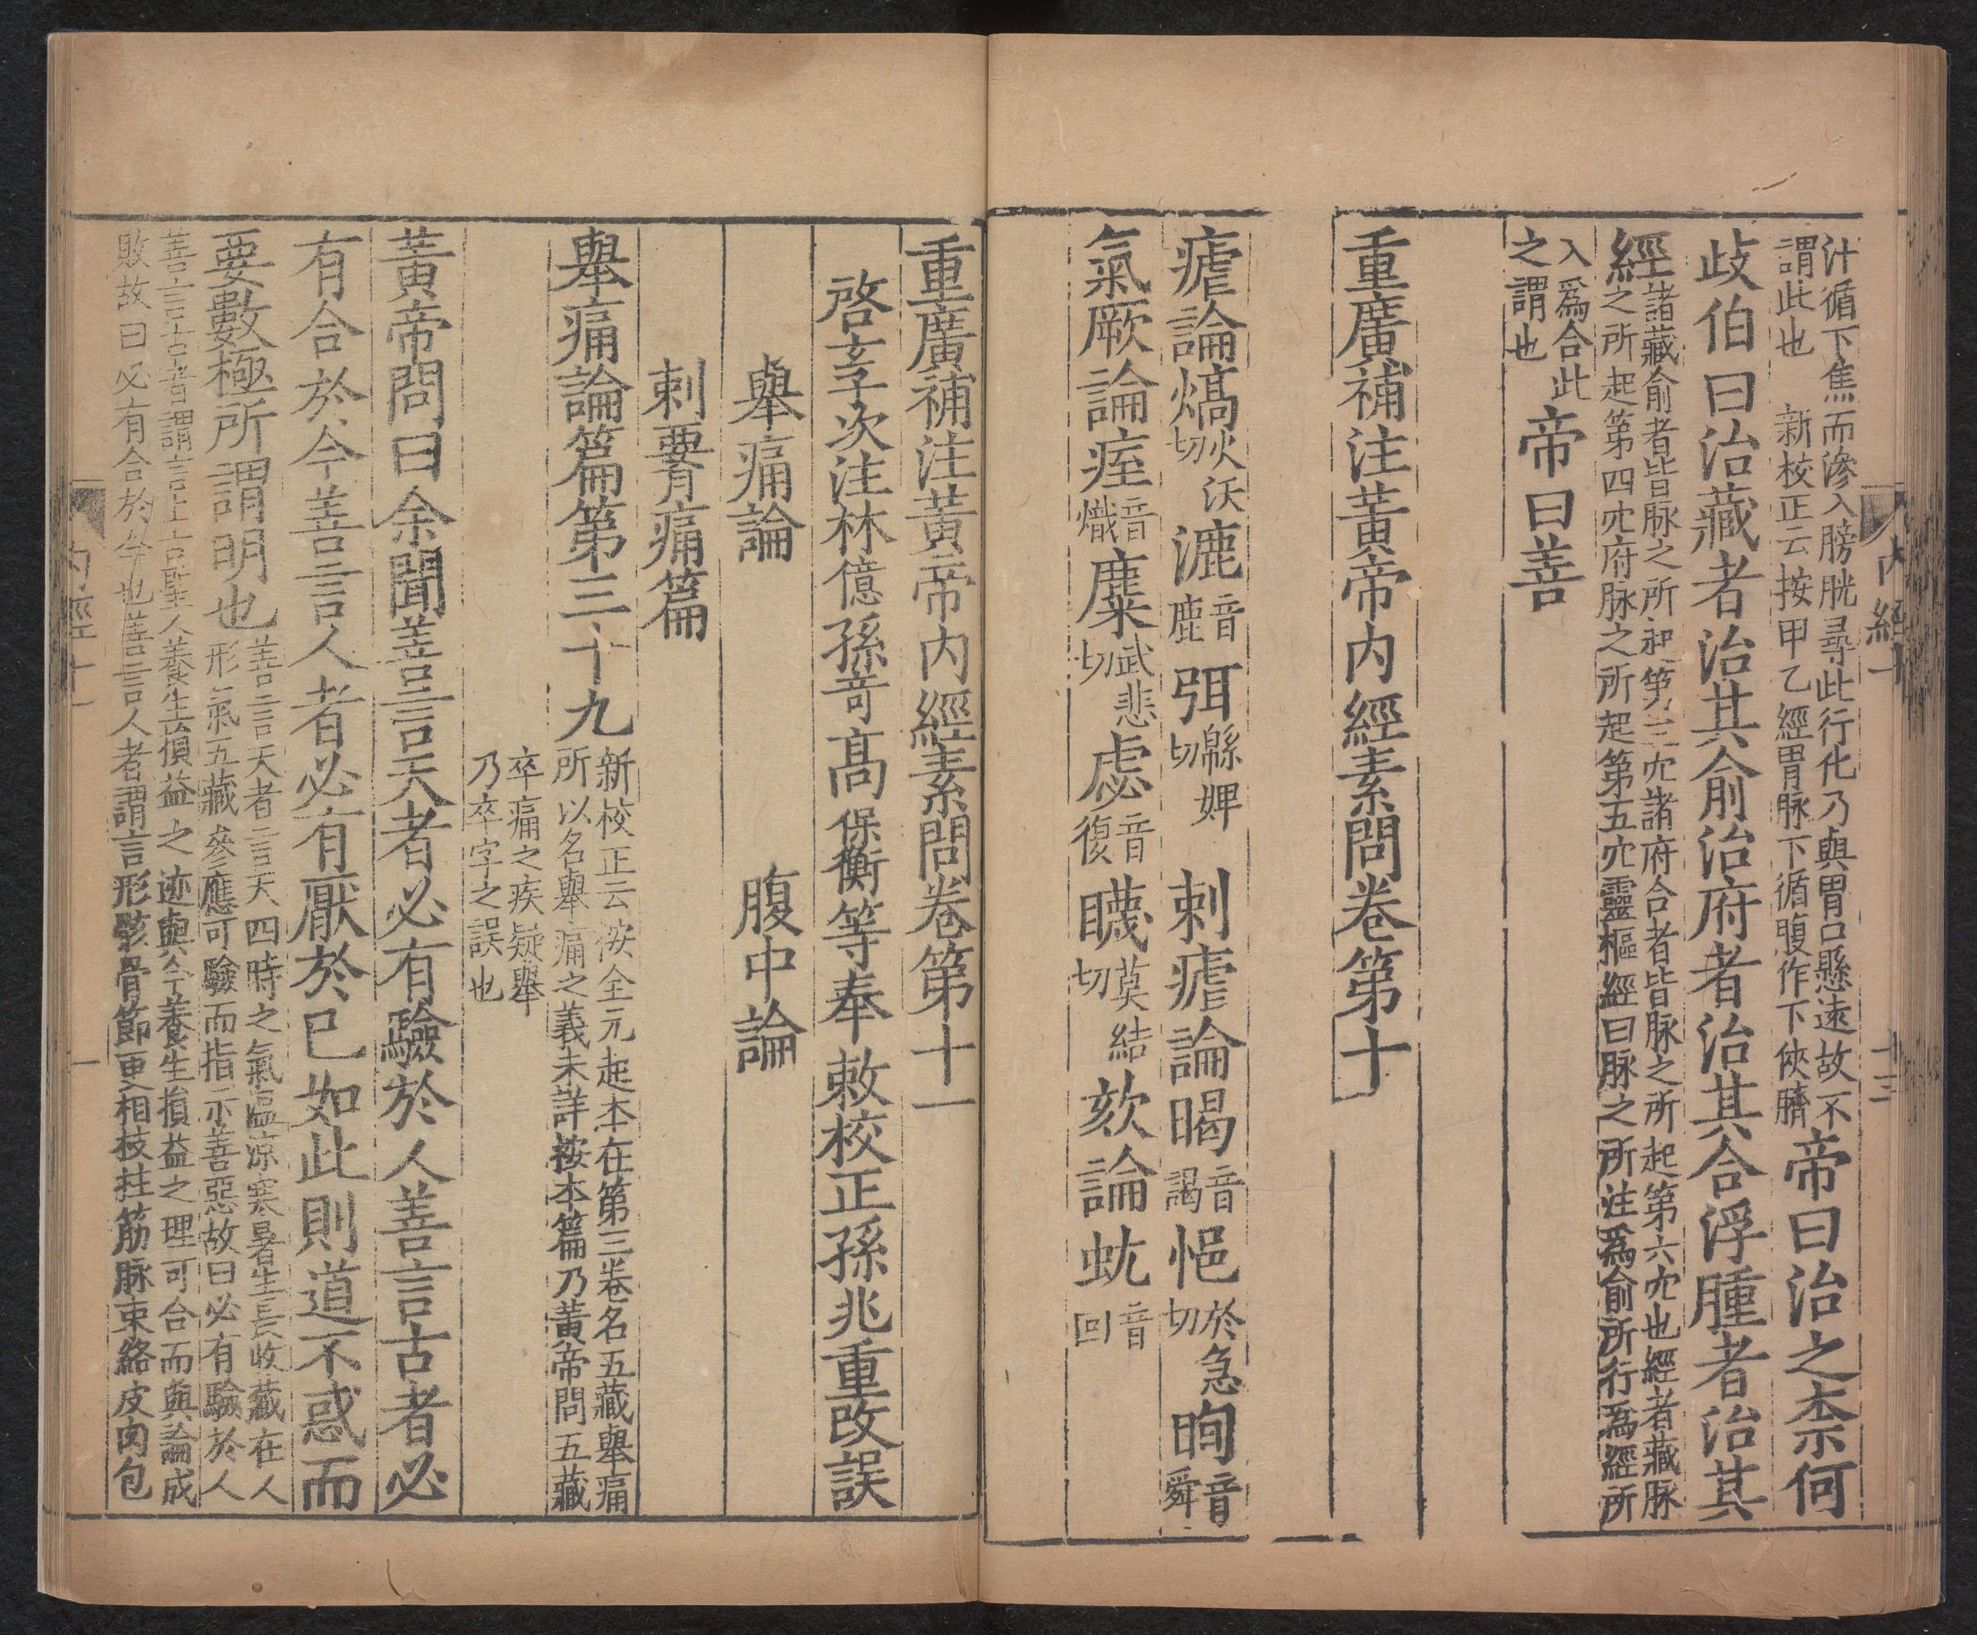 汁循下焦而滲入膀胱尋此行化乃與胃口懸遠故不
謂此也　新校正云按甲乙經胃脉下循腹作下俠臍
帝曰治之柰何
歧伯曰治藏者治其俞治府者治其合浮腫者治其
經
諸藏俞者皆脉之所起第三穴諸府合者皆脉之所起第六穴也經者藏脉
之所起第四穴府脉之所起第五穴靈樞經曰脉之所注爲俞所行爲經所
入爲合此
之謂也
帝曰善
重廣補注黃帝內經素問卷第十
瘧論熇火沃切漉音鹿弭緜婢切　刺瘧論暍音謁悒於急切眴音舜
氣厥論痓音熾麋武悲切虙音復䁾莫結切欬論蚘音回
內經十
十三
重廣補注黃帝內經素問卷第十一
啓玄子次注林億孫奇高保衡等奉敕校正孫兆重改誤
舉痛論　腹中論
刺要痛篇
舉痛論篇第三十九
新校正云按全元起本在第三卷名五藏舉痛
所以名舉痛之義未詳按本篇乃黃帝問五藏
卒痛之疾疑舉
乃卒字之誤也
黃帝問曰余聞善言天者必有驗於人善言古者必
有合於今善言人者必有厭於己如此則道不惑而
要數極所謂明也
善言天者言天四時之氣溫涼寒暑生長收藏在人
形氣五藏參應可驗而指示善惡故曰必有驗於人
善言古者謂言上古聖人養生損益之迹與今養生損益之理可合而與論成
敗故曰必有合於今也善言人者謂言形骸骨節更相枝拄筋脉束絡皮肉包
內經十一
一